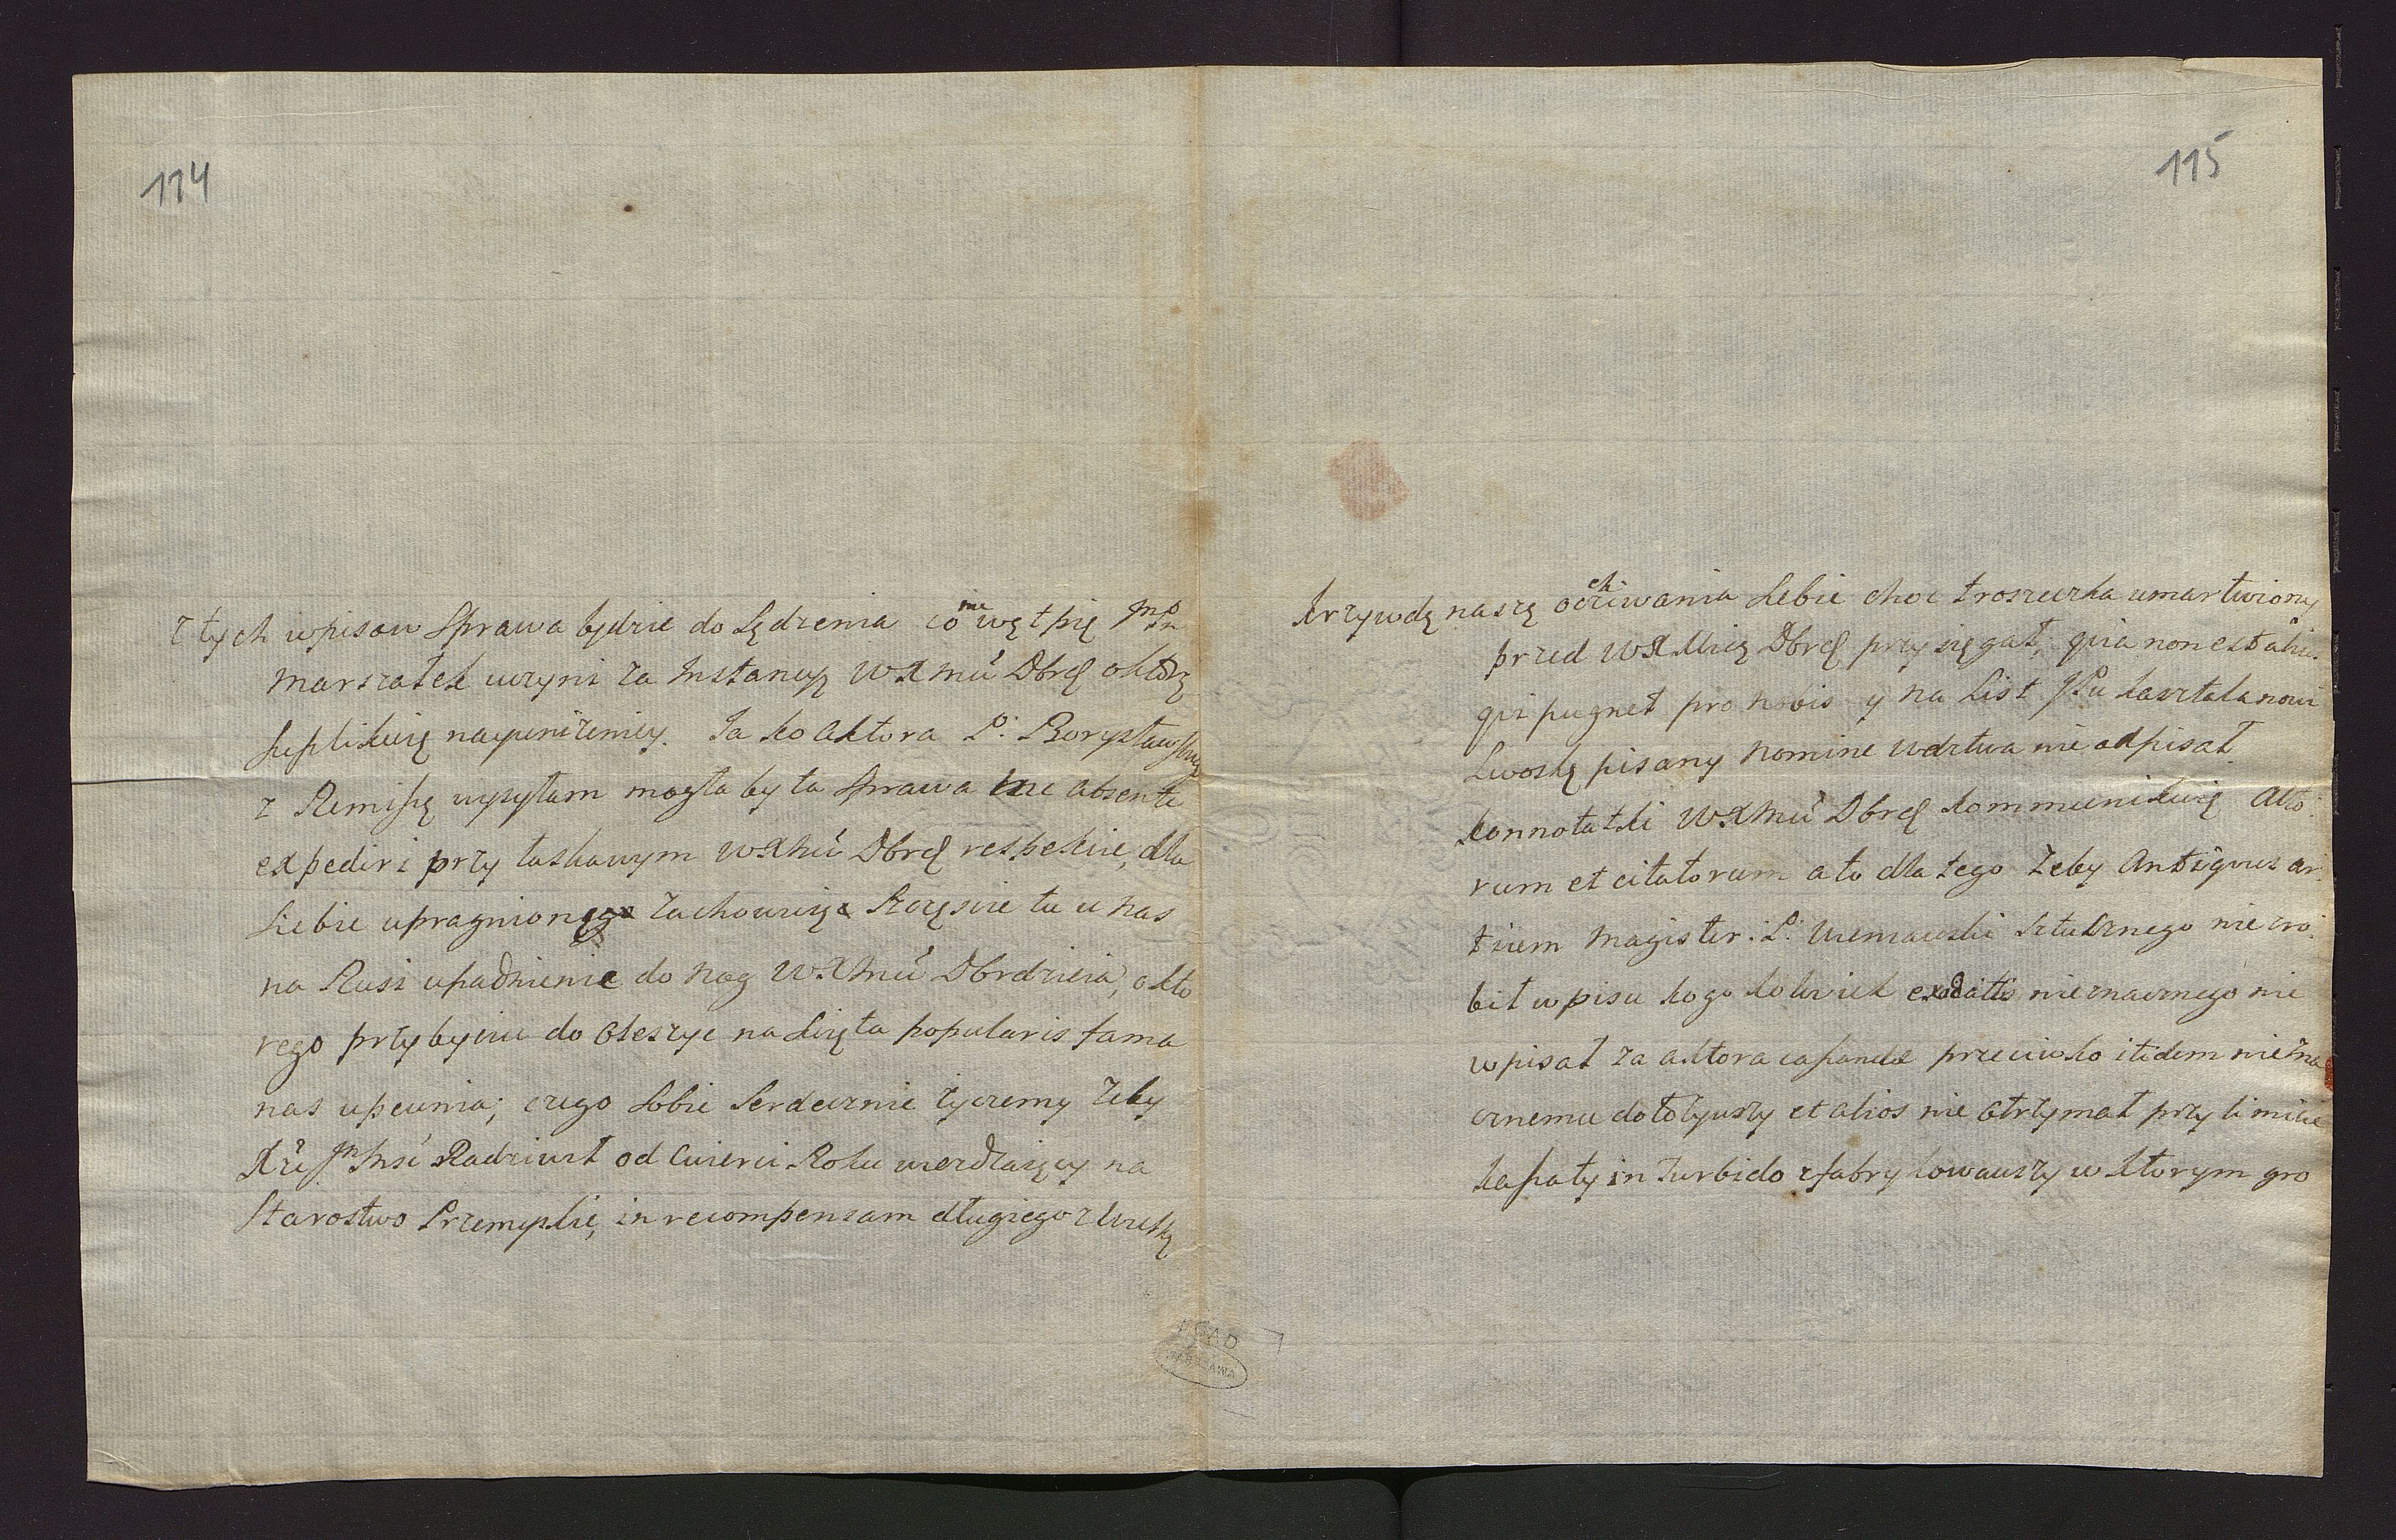 114
z tych wpisow Sprawa będzie do Sędzenia co nie wętpię JmP
Marszałek uczyni za Instancyą WXMći Dbrę o ktorą
suplikuię nayunizeniey. Ja ko Aktora P. Borysławskiego
z Remissą wysyłam mogła by ta Sprawa me absente
expediri przy łaskawym WXMći Dbrę respekcie, dla
Siebie upragnionego zachowuię Szczęscie tu u nas
na Rusi upadnienie do nog WXMći Dbrdzieia, o kto
rego przybyciu do Oleszyc na Swięta popularis fama
nas upewnia; czego Sobie Serdecznie życzemy zeby
Xże Jm Radziwił od Cwierci Roku wiezdzaięcy na
Starostwo Przemyslkie, in recompensam długiego zwłoką
115
krzywdę naszę oczekiwania Siebie choc troszeczka umartwiony
przed WXMcią Dbrę przysięgał, quia non est alius
qui pugnet pro nobis y na List JPu kasztelanowi
Lwoskę pisany Nomine wdztwa nie odpisał
konnotatki WXMći Dbrę kommunikuię Acto
rum et citatorum a to dla tego zeby Antiquus ar
tium Magister P. sztucznego nie zro
bił wpisu kogo kolwiek nieznacznego nie
wpisał za aktora przeciwko itidem niezna
cznemu dołozywszy et alios nie otrzymał przy limicie
kapaty in turbido zfabrykowawszy w ktorym gro
AGAD
WARSZAWA